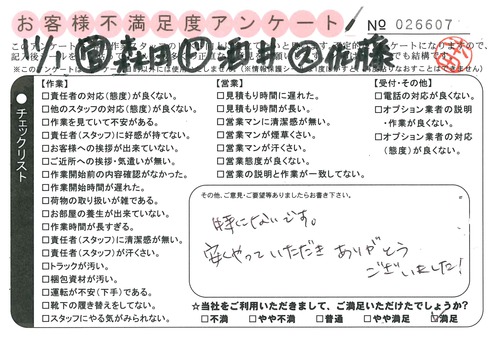 お客様不満足度アンケート
No 026607
【作業】
□責任者の対応(態度)が良くない。
□他のスタッフの対応(態度)が良くない。
□作業を見ていて不安がある。
□責任者(スタッフ)に好感が持てない。
□お客様への挨拶が出来ていない。
□ご近所への挨拶・気遣いが無い。
□作業開始前の内容確認がなかった。
□作業開始時間が遅れた。
□荷物の取り扱いが雑である。
□お部屋の養生が出来ていない。
□作業時間が長すぎる。
□責任者(スタッフ)に清潔感が無い。
□責任者(スタッフ)が汗くさい。
□トラックが汚い。
□梱包資材が汚い。
□運転が不安(下手)である。
□靴下の履き替えをしてない。
□スタッフにやる気がみられない。
【営業】
□見積もり時間に遅れた。
□見積もり時間が長い。
□営業マンに清潔感が無い。
□営業マンが煙草くさい。
□営業マンが汗くさい。
□営業態度が良くない。
□営業の説明と作業が一致してない。
【受付・その他】
□電話の対応が良くない。
□オプション業者の説明
・作業が良くない。
□オプション業者の対応
(態度)が良くない。
チェックリスト
その他、ご意見・ご要望等ありましたらお書き下さい。
特にないです。
安くやっていただき ありがとう
ございました!
☆当社をご利用いただきまして、ご満足いただけたでしょうか?
□不満 □やや不満 □普通 □やや満足 □満足